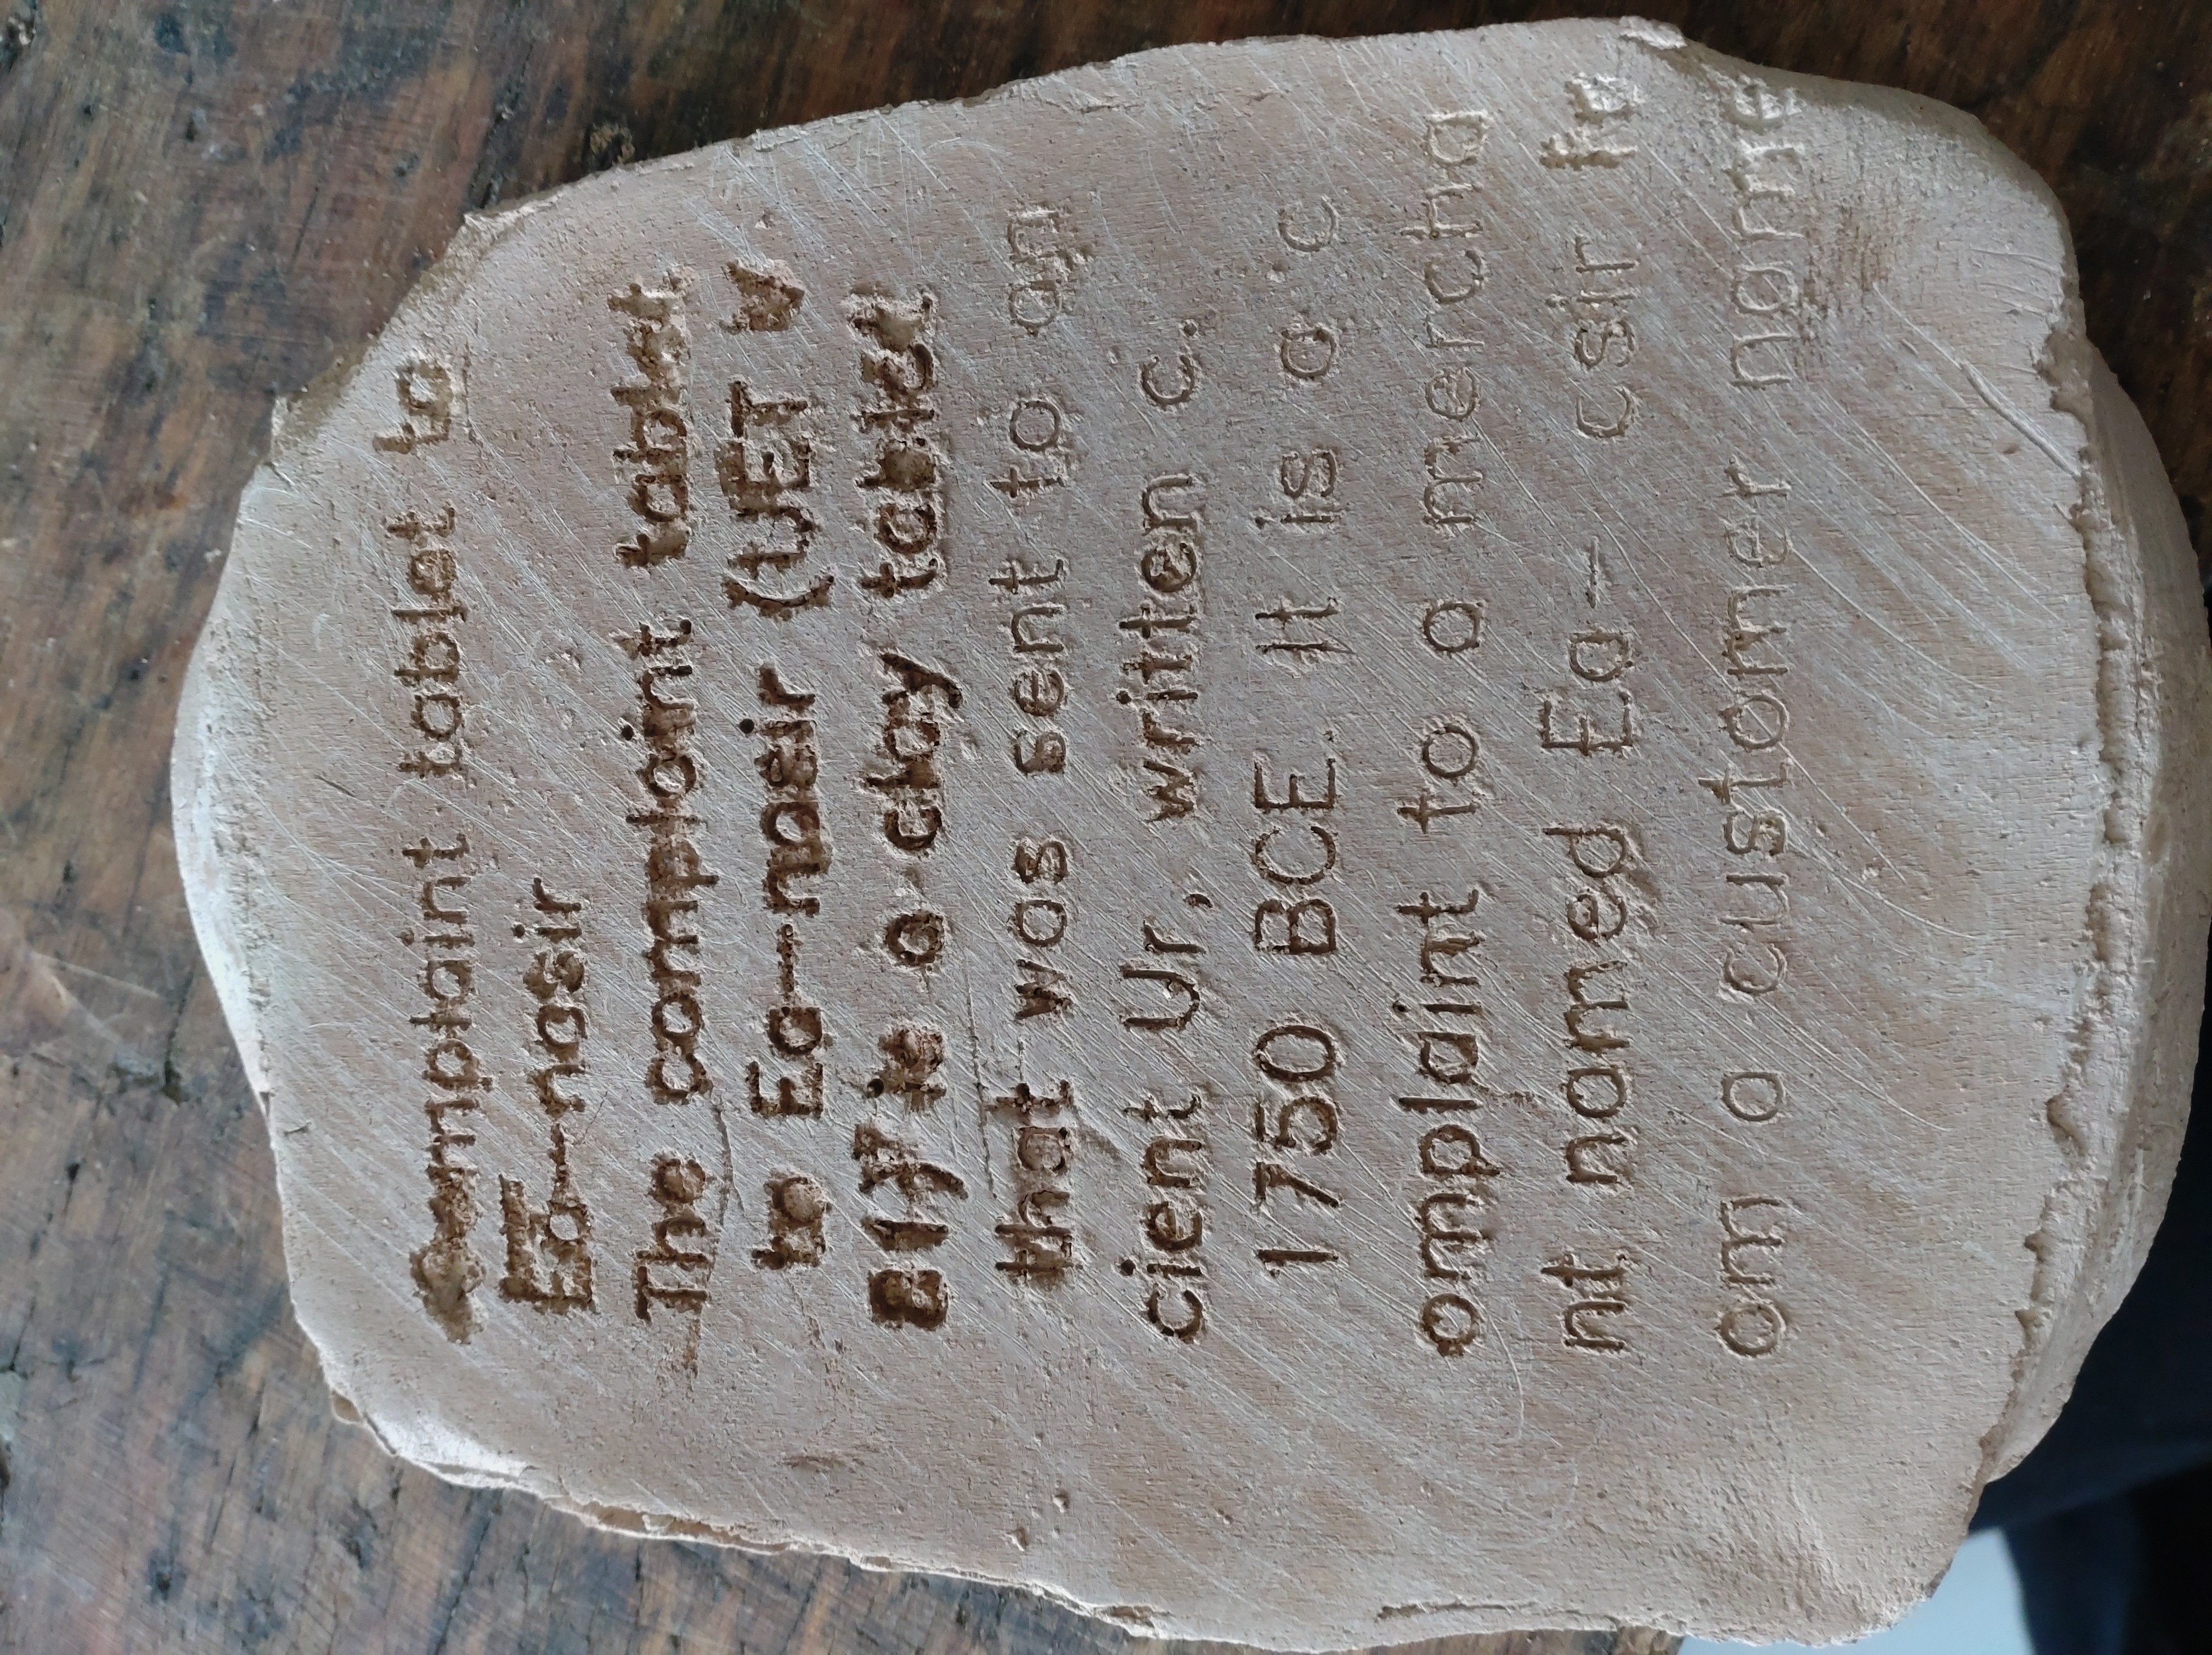 Complaint tablet to
Ea-nasir
The complaint tablet
to Ea-nasir (UET V
81) is a clay tablet
that was sent to an
cient Ur, written c.
1750 BCE. It is a c
omplaint to a mercha
nt named Ea- csir
om a customer name